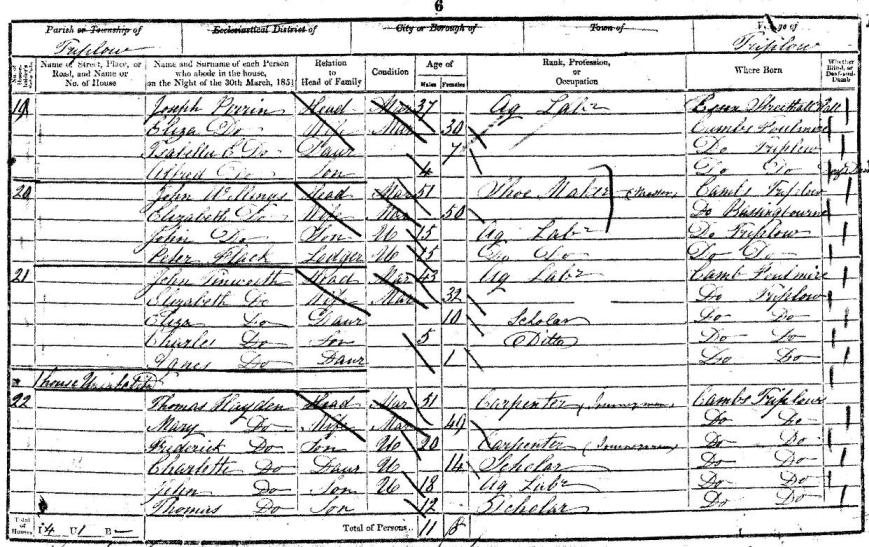 6
Parish or Township of Ecclesiastical District of City or Borough of Town of Village of
Triplow Triplow
Name of Street, Place, or Road, and Name or No. of House
Name and Surname of each Person who abode in the house, on the Night of the 30th March, 1851
Relation to Head of Family
Condition
Age of
Males Females
Rank, Profession, or Occupation
Where Born
Whether Blind, or Deaf-and-Dumb
19 Joseph Perrin Head Mar 37 Ag Labr
Eliza Do Wife Mar 30 Cambs Foulmire
Isabella E Do Daur 7 Do Triplow
Alfred Do Son 4 Do Do
20 John Willings Head Mar 51 Shoe Maker Cambs Triplow
Elizabeth Do Wife Mar 50 Do Bassingbourne
John Do Son U 15 Ag Labr Do Triplow
Peter Black Lodger U 15 Do Do Do Do
21 John Head Mar 43 Ag Labr Camb Foulmire
Elizabeth Do Wife Mar 32 Do Triplow
Eliza Do Daur 10 Scholar Do Do
Charles Do Son 5 Ditto Do Do
Do Daur 1 Do Do
1 house Uninhabited
22 Thomas Hayden Head Mar 51 Carpenter Cambs Triplow
Mary Do Wife Mar 49 Do Do
Frederick Do Son U 20 Carpenter Do Do
Charlotte Do Daur U 14 Scholar Do Do
John Do Son U 18 Ag Labr Do Do
Thomas Do Son 12 Scholar Do Do
Total of Houses I 4 U 1 B — Total of Persons 11 8